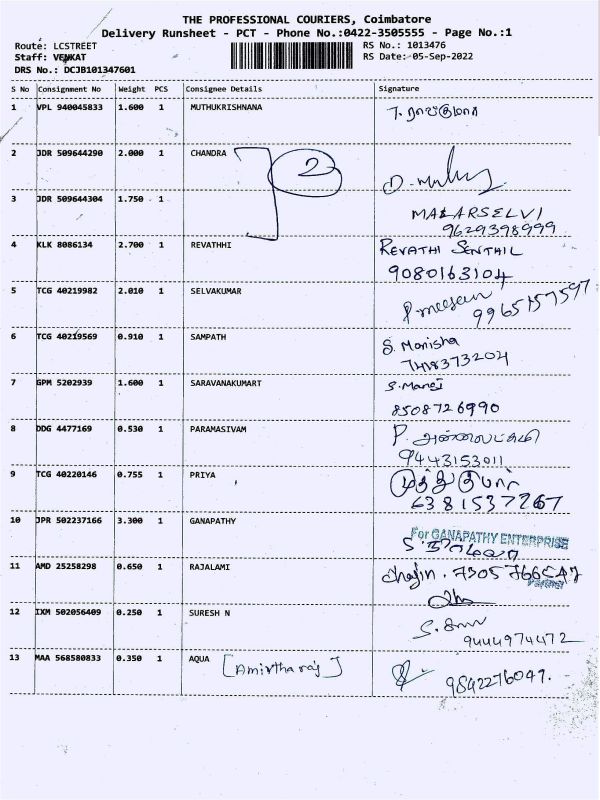 THE PROFESSIONAL COURIERS, Coimbatore
Delivery Runsheet - PCT - Phone No.:0422-3505555 - Page No.:1
Route: LCSTREET RS No.: 1013476
Staff: VENKAT RS Date:-05-Sep-2022
DRS No.: DCJB101347601
S No Consignment No Weight PCS Consignee Details Signature
1 VPL 940045833 1.600 1 MUTHUKRISHNANA
2 JDR 509644290 2.000 1 CHANDRA 2
3 JDR 509644304 1.750 1 MALARSELVI
9629398999
4 KLK 8086134 2.700 1 REVATHHI REVATHI SENTHIL
9080163104
5 TCG 40219982 2.010 1 SELVAKUMAR
9965157597
6 TCG 40219569 0.910 1 SAMPATH S. Monisha
7418373204
7 GPM 5202939 1.600 1 SARAVANAKUMART S. Manoj
8508726990
8 DDG 4477169 0.530 1 PARAMASIVAM
9443153011
9 TCG 40220146 0.755 1 PRIYA முத்துகுமார்
6381537267
10 JPR 502237166 3.300 1 GANAPATHY For GANAPATHY ENTERPRISE
11 AMD 25258298 0.650 1 RAJALAMI
Partner
12 IXM 502056409 0.250 1 SURESH N
9444974472
13 MAA 568580833 0.350 1 AQUA [Amirtharaj] 9842276047.